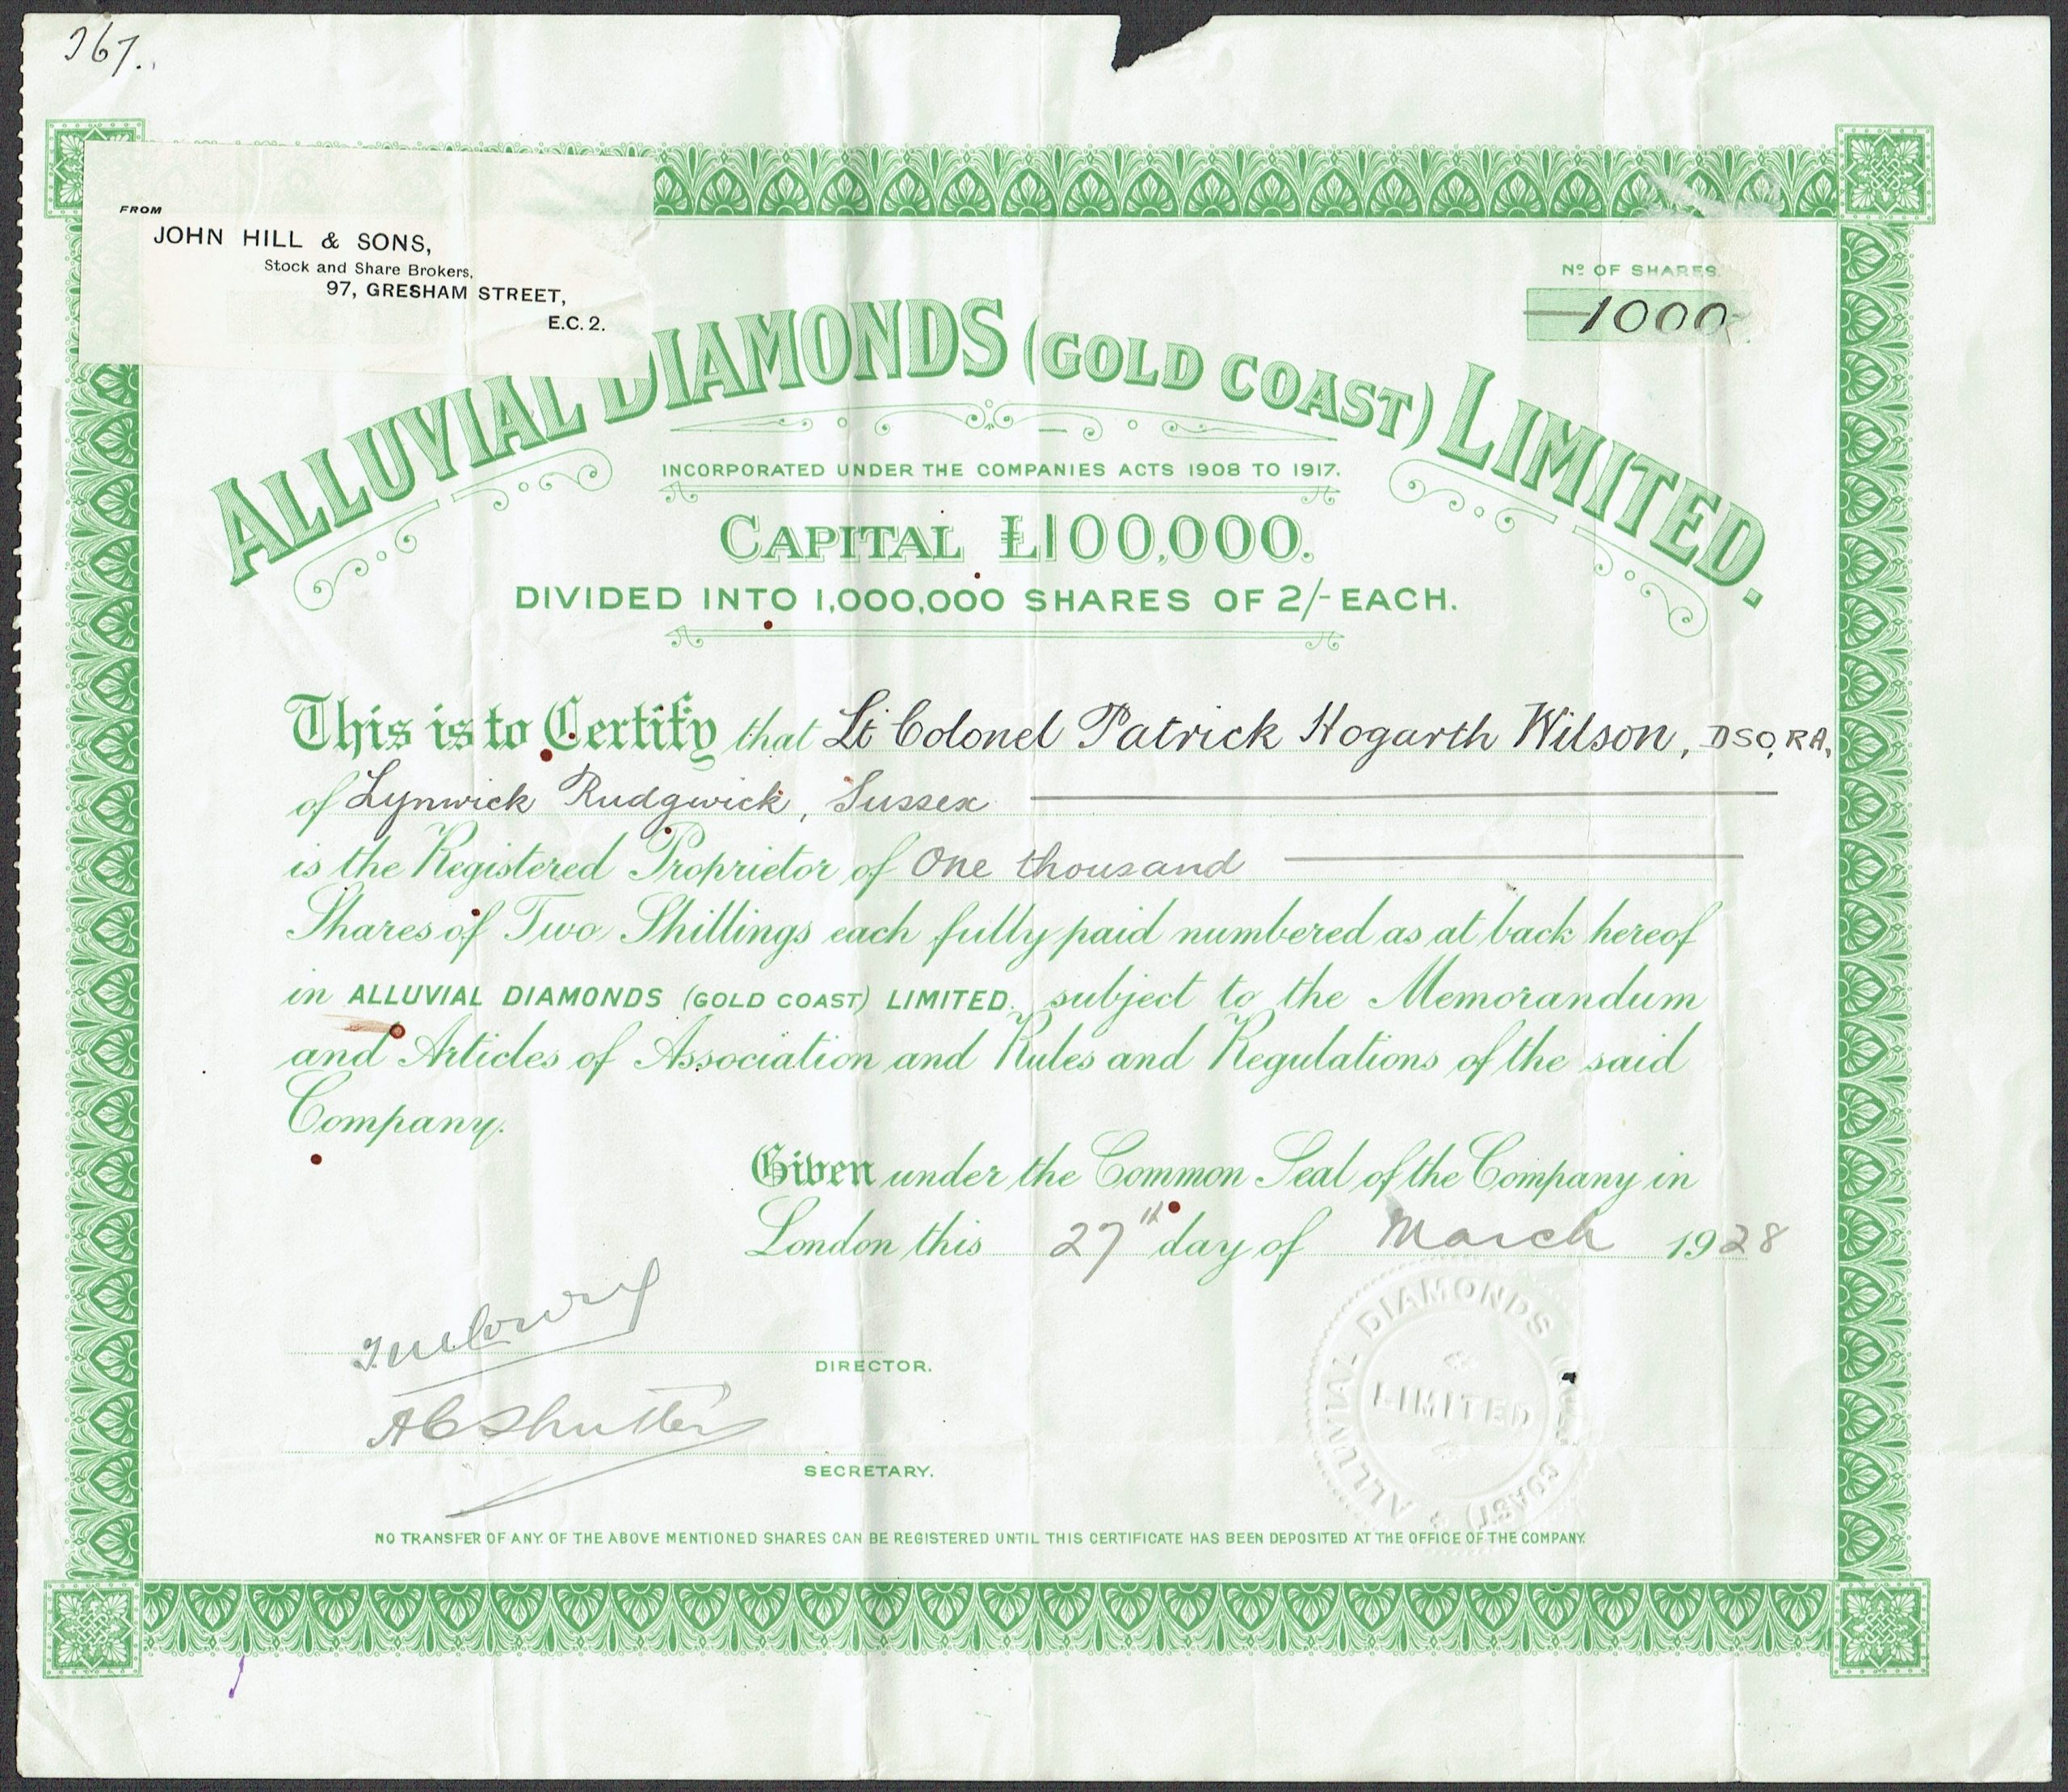 367.
FROM
JOHN HILL & SONS,
Stock and Share Brokers,
97, GRESHAM STREET,
E.C. 2.
Nº OF SHARES.
1000
ALLUVIAL DIAMONDS (GOLD COAST) LIMITED.
INCORPORATED UNDER THE COMPANIES ACTS 1908 TO 1917.
CAPITAL £100,000.
DIVIDED INTO 1,000,000 SHARES OF 2/- EACH.
This is to Certify that Lt Colonel Patrick Hogarth Wilson, DSO, RA,
of Lynwick Rudgwick, Sussex
is the Registered Proprietor of One thousand
Shares of Two Shillings each fully paid numbered as at back hereof
in ALLUVIAL DIAMONDS (GOLD COAST) LIMITED. subject to the Memorandum
and Articles of Association and Rules and Regulations of the said
Company.
Given under the Common Seal of the Company in
London this 27th day of March 1928
DIRECTOR.
A C Shutter
SECRETARY.
ALLUVIAL DIAMONDS (GOLD COAST)
LIMITED
NO TRANSFER OF ANY OF THE ABOVE MENTIONED SHARES CAN BE REGISTERED UNTIL THIS CERTIFICATE HAS BEEN DEPOSITED AT THE OFFICE OF THE COMPANY.